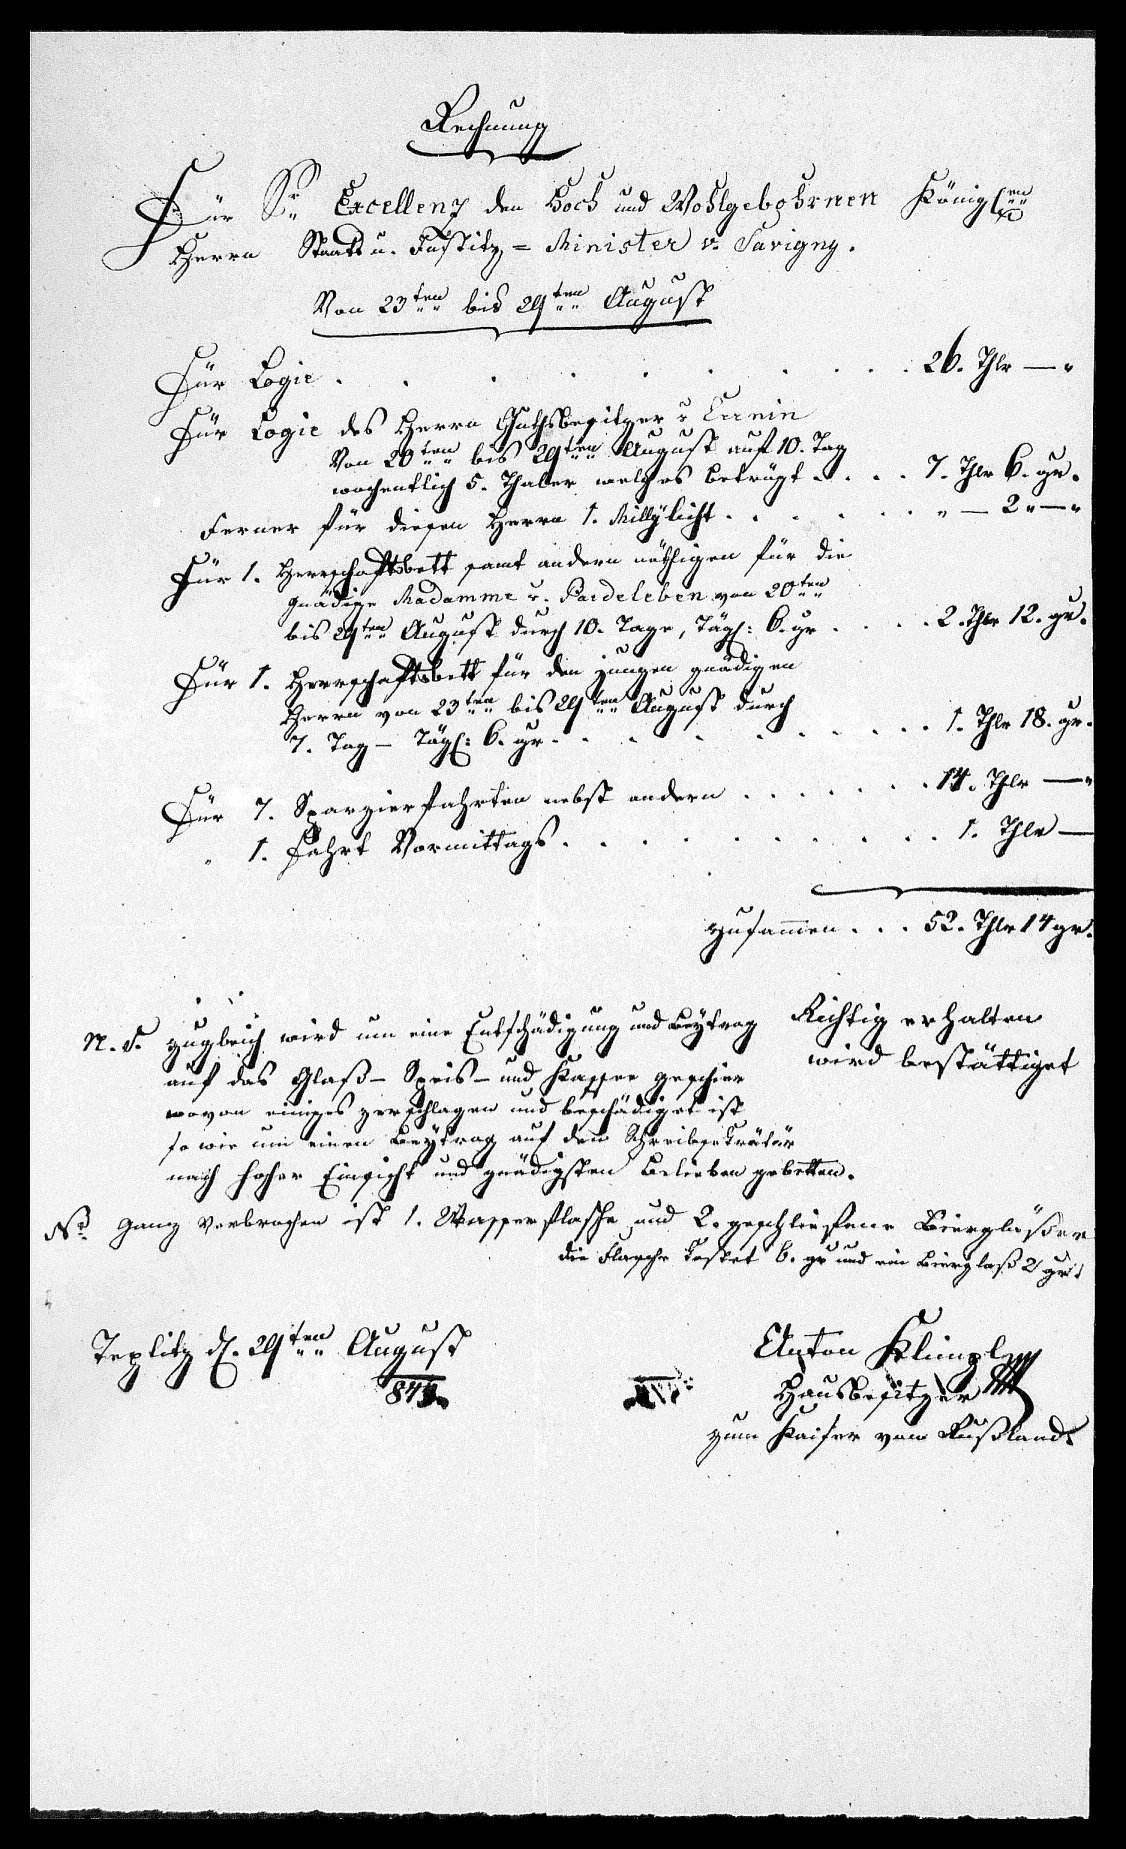 Rechnung
Für Sr Excellenz den Hoch und Wohlgebohrnen Königlen
Herrn Staats u. Justitz = Minister v. Savigny.
Von 23ten bis 29ten August
Für Logie . . . . . . . . . 26. Thlr — "
Für Logie des Herrn Guthsbesitzer v
Von 20ten bis 29ten August auf 10. Tag
wochentlich 5. Thaler welches beträgt . . . . 7. Thlr 6. gr.
Ferner für diesen Herrn 1. Millylicht . . . . . . " — 2 " — "
Für 1. Herrschaftsbett samt andern nöthigen für die
gnädige Madamme v. Pardeleben von 20ten
bis 29ten August durch 10. Tage, Tägl: 6. gr . . . . 2. Thlr 12. gr.
Für 1. Herrschaftsbett für den jungen gnädigen
Herrn von 23ten bis 29ten August durch
7. Tag — Tägl: 6. gr . . . . . . . . . 1. Thlr 18. gr.
Für 7. Spazierfahrten nebst andern . . . . . . . 14. Thlr — "
" 1. Fahrt Vormittags . . . . . . . . . 1. Thlr —
zusammen . . . 52. Thlr 14 gr.
N. S. zugleich wird um eine Entschädigung und Beytrag
auf das Glaß — Speis — und Kaffee geschier
wovon einiges zerschlagen und beschädiget ist
so wie um einen Beytrag auf den Schreibsekrätär
nach hoher Einsicht und gnädigsten Belieben gebetten.
Richtig erhalten
wird bestättiget
NB. Ganz verbrochen ist 1. Wasserflasche und 2. geschliefene Biergläßer
die Flasche kostet 6. gr und ein Bierglaß 2 gr.
Teplitz d. 29ten August
Anton Klimpl
Hausbesitzer
zum Kaiser von Rußland.